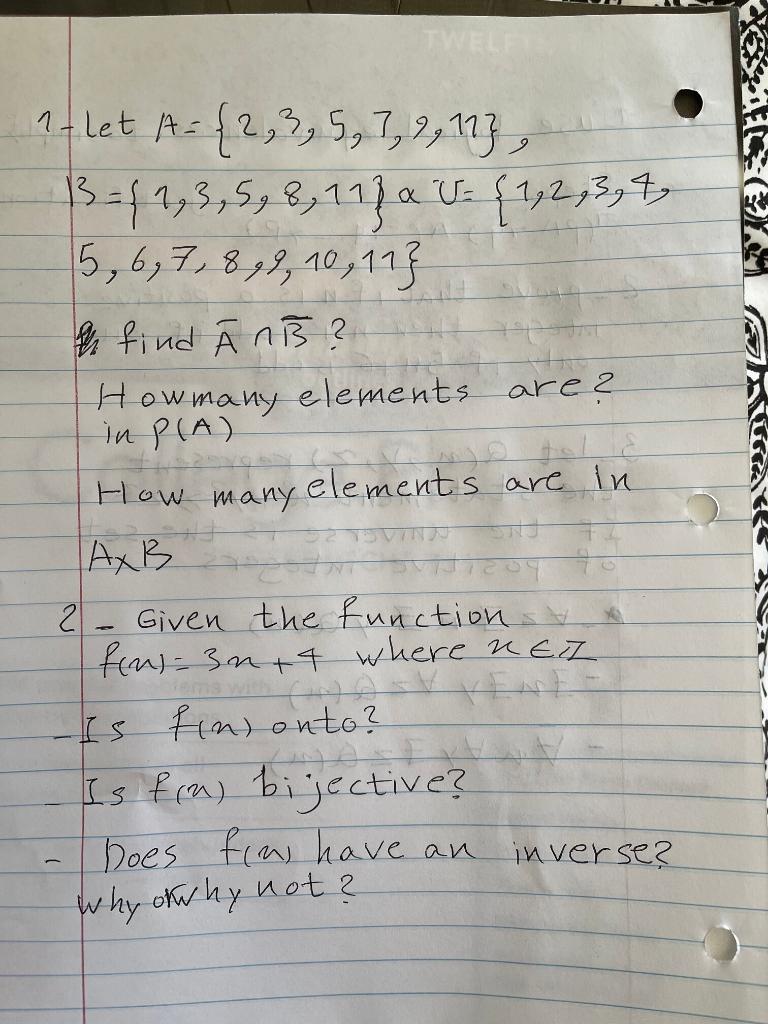 1- let A = {2,3,5,7,9,11},
B = {1,3,5,8,11} & U = {1,2,3,4,
5,6,7,8,9,10,11}
find A̅ ∩ B̅ ?
How many elements are?
in P(A)
How many elements are in
A×B
2 - Given the function
f(x) = 3x + 4 where x ∈ ℤ
- Is f(x) onto?
- Is f(x) bijective?
- Does f(x) have an inverse?
why or why not?